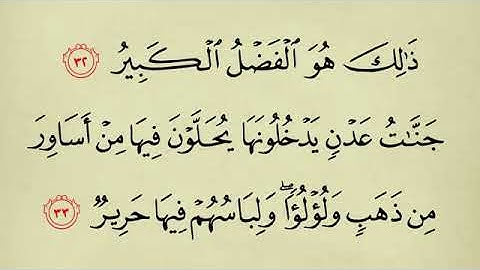 ذَٰلِكَ هُوَ ٱلْفَضْلُ ٱلْكَبِيرُ ٣٢
جَنَّٰتُ عَدْنٍ يَدْخُلُونَهَا يُحَلَّوْنَ فِيهَا مِنْ أَسَاوِرَ
مِن ذَهَبٍ وَلُؤْلُؤًا ۖ وَلِبَاسُهُمْ فِيهَا حَرِيرٌ ٣٣